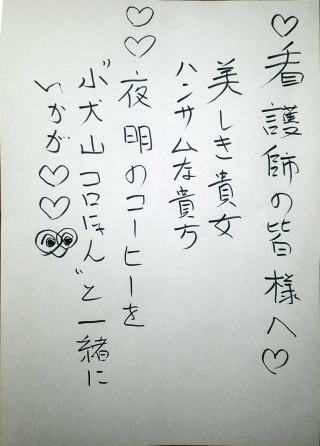 ♡看護師の皆様へ♡
美しき貴女
ハンサムな貴方
♡♡夜明のコーヒーを
"犬山コロにゃん"と一緒に
いかが♡♡